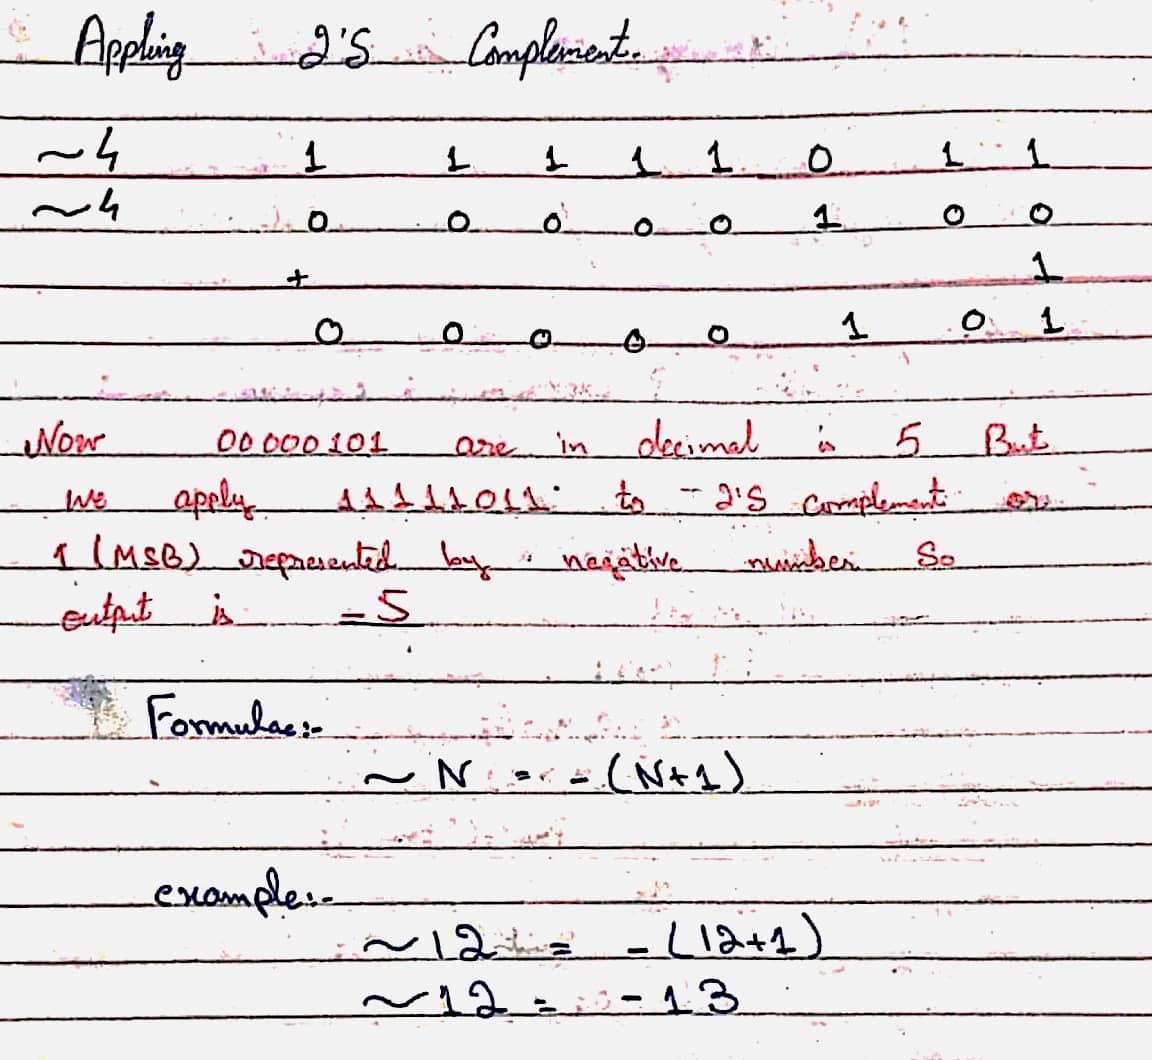 Appling 2's Complement.
~4 1 1 1 1 1 0 1 1
~4 0 0 0 0 0 1 0 0
+ 1
0 0 0 0 0 1 0 1
Now 00000101 are in decimal is 5 But
we apply 11111011 to - 2's complement or
1 (MSB) represented by negative number So
output is -5
Formulae:-
~N = -(N+1)
example:-
~12 = -(12+1)
~12 = -13